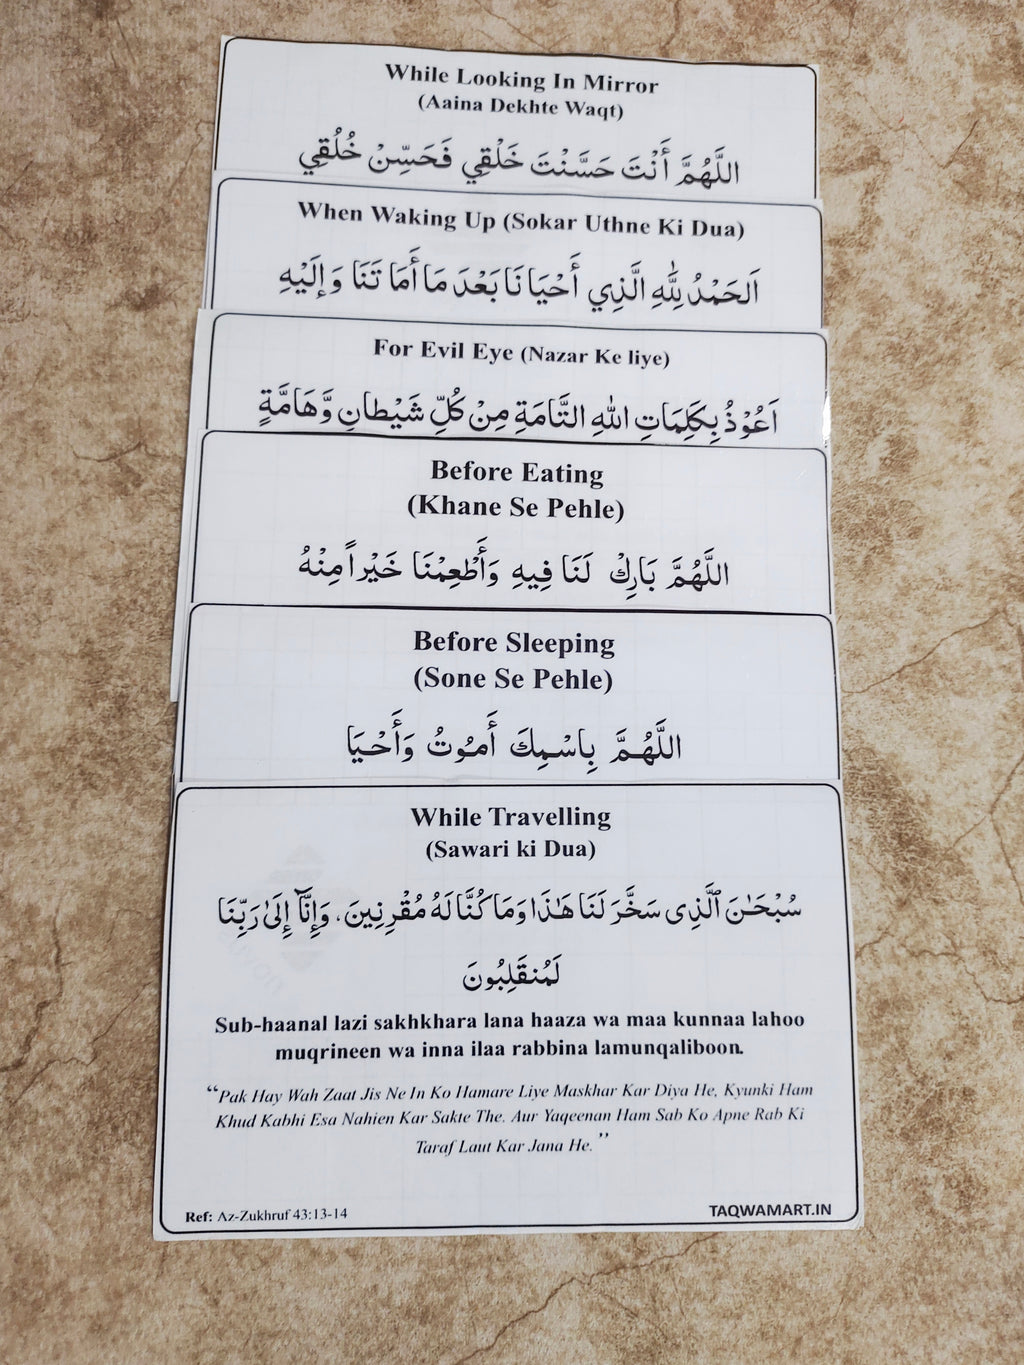 While Looking In Mirror
(Aaina Dekhte Waqt)
اللَّهُمَّ أَنْتَ حَسَّنْتَ خَلْقِي فَحَسِّنْ خُلُقِي
When Waking Up (Sokar Uthne Ki Dua)
اَلحَمْدُ لِلَّهِ الَّذِي أَحْيَانَا بَعْدَ مَا أَمَاتَنَا وَإِلَيْهِ
For Evil Eye (Nazar Ke liye)
اَعُوْذُ بِكَلِمَاتِ اللهِ التَّامَةِ مِنْ كُلِّ شَيْطانٍ وَّهَامَّةٍ
Before Eating
(Khane Se Pehle)
اللَّهُمَّ بَارِكْ لَنَا فِيهِ وَأَطْعِمْنَا خَيْراً مِنْهُ
Before Sleeping
(Sone Se Pehle)
اللَّهُمَّ بِاسْمِكَ أَمُوتُ وَأَحْيَا
While Travelling
(Sawari ki Dua)
سُبْحَٰنَ ٱلَّذِى سَخَّرَ لَنَا هَٰذَا وَمَا كُنَّا لَهُ مُقْرِنِينَ، وَإِنَّآ إِلَىٰ رَبِّنَا
لَمُنقَلِبُونَ
Sub-haanal lazi sakhkhara lana haaza wa maa kunnaa lahoo
muqrineen wa inna ilaa rabbina lamunqaliboon.
“Pak Hay Wah Zaat Jis Ne In Ko Hamare Liye Maskhar Kar Diya He, Kyunki Ham
Khud Kabhi Esa Nahien Kar Sakte The. Aur Yaqeenan Ham Sab Ko Apne Rab Ki
Taraf Laut Kar Jana He.”
Ref: Az-Zukhruf 43:13-14
TAQWAMART.IN